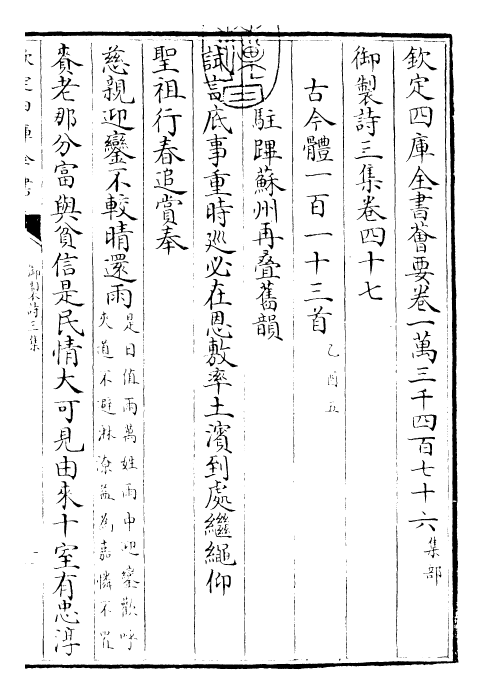 欽定四庫全書薈要卷一萬三千四百七十六 集部
御製詩三集卷四十七
古今體一百一十三首 乙酉五
駐蹕蘇州再叠舊韻
試言底事重時廵必在恩敷率土濱到處繼繩仰
聖祖行春追賞奉
慈親迎鑾不較晴還雨 是日值雨萬姓雨中迎鑾歡呼夾道不避淋潦益為嘉憐不置
賚老那分富與貧信是民情大可見由來十室有忠淳
欽定四庫全書
御製詩三集